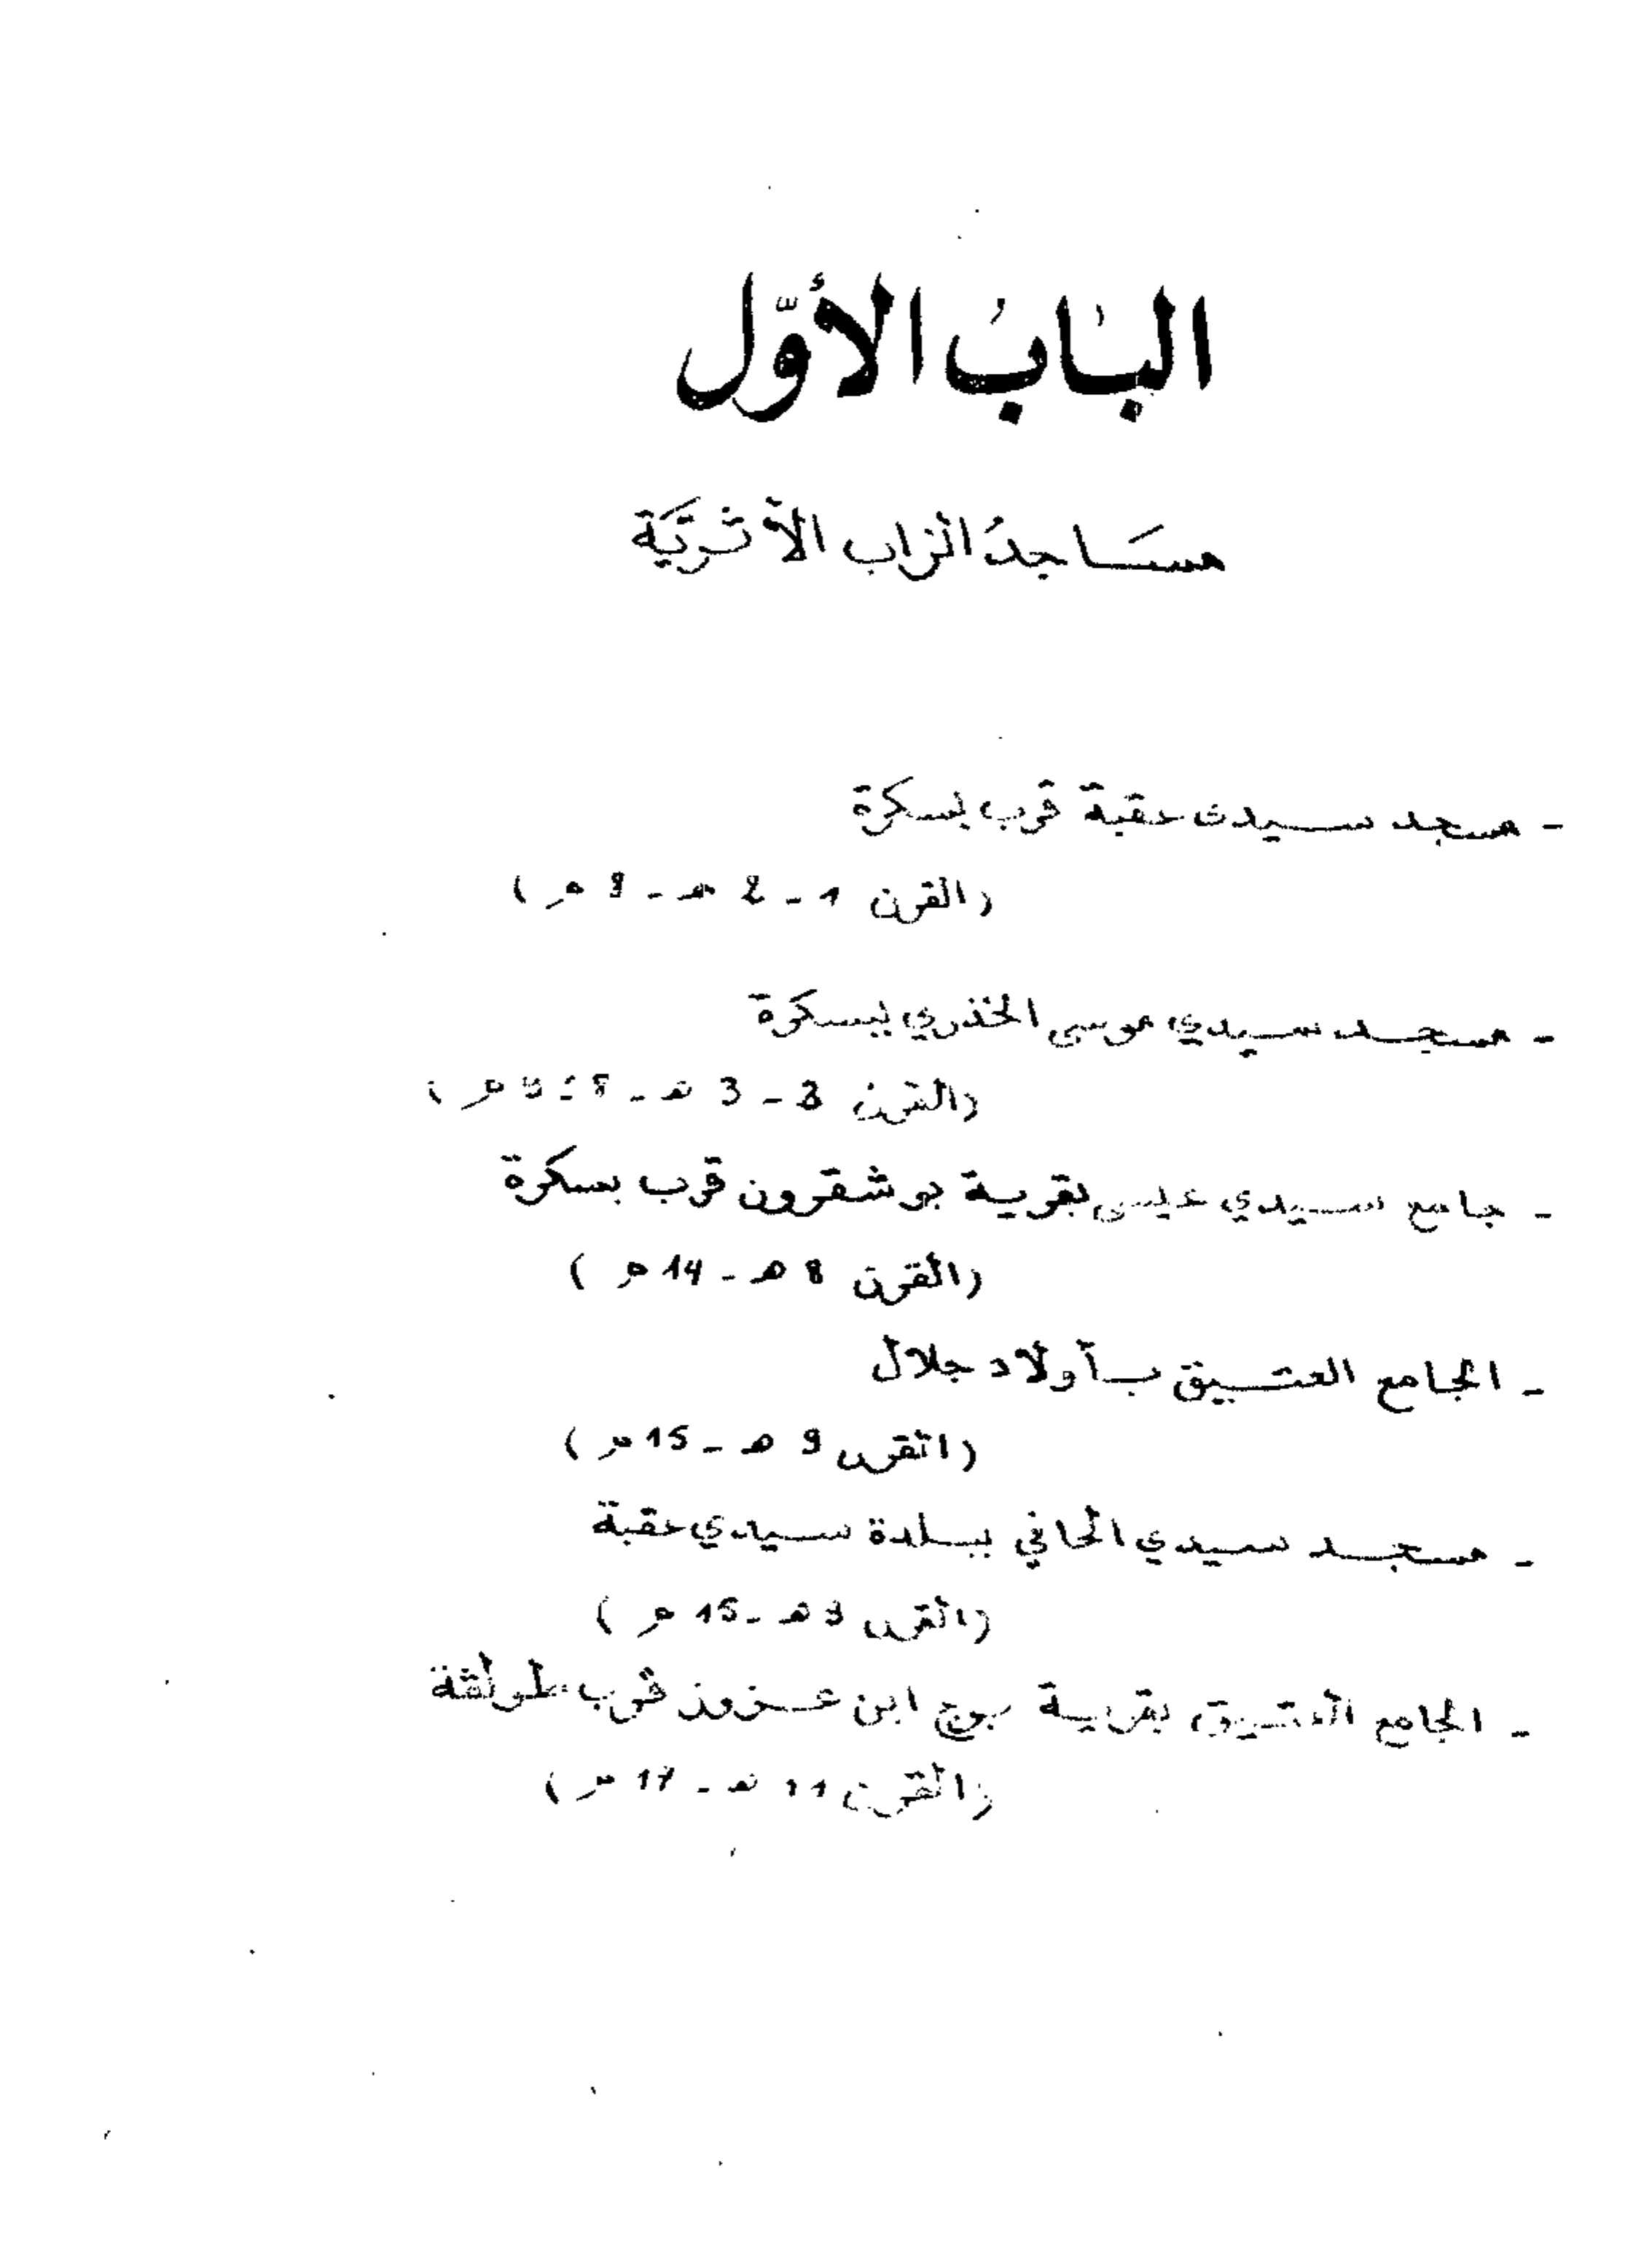 البابُ الأوّل
مسَاجدُ الزاب الأثريَّة
- مسجد سيدي عقبة قرب بسكرة
(القرن 1 - 2 هـ - 8 م)
- مسجد سيدي موسى الخذري ببسكرة
(القرن - 3 هـ - م)
- جامع سيدي عيسى بقرية بوشقرون قرب بسكرة
(القرن 8 هـ - 14 م)
- الجامع العتيق بأولاد جلال
(القرن 9 هـ - 15 م)
- مسجد سيدي الحاني ببلدة سيدي عقبة
(القرن 9 هـ - 15 م)
- الجامع العتيق بقرية برج ابن عزوز قرب طولقة
(القرن 11 هـ - 17 م)